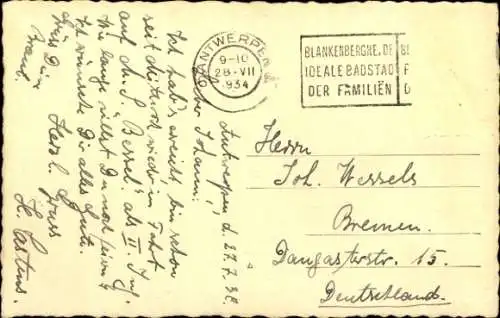 ANTWERPEN
9-10
28-VII
1934
BLANKENBERGHE, DE
IDEALE BADSTAD
DER FAMILIËN
BL
Antwerpen, d. 27.7.34.
Lieber Johann!
Ich hab's erreicht, bin schon
wieder in Fahrt
auf M.S. "Bessel" als II. Ing.
Wie lange willst Du noch feiern?
Ich wünsche Dir alles Gute.
Herzl. Gruss
H. Carstens.
Herrn
Joh. Wessels
Bremen.
Dangasterstr. 15.
Deutschland.